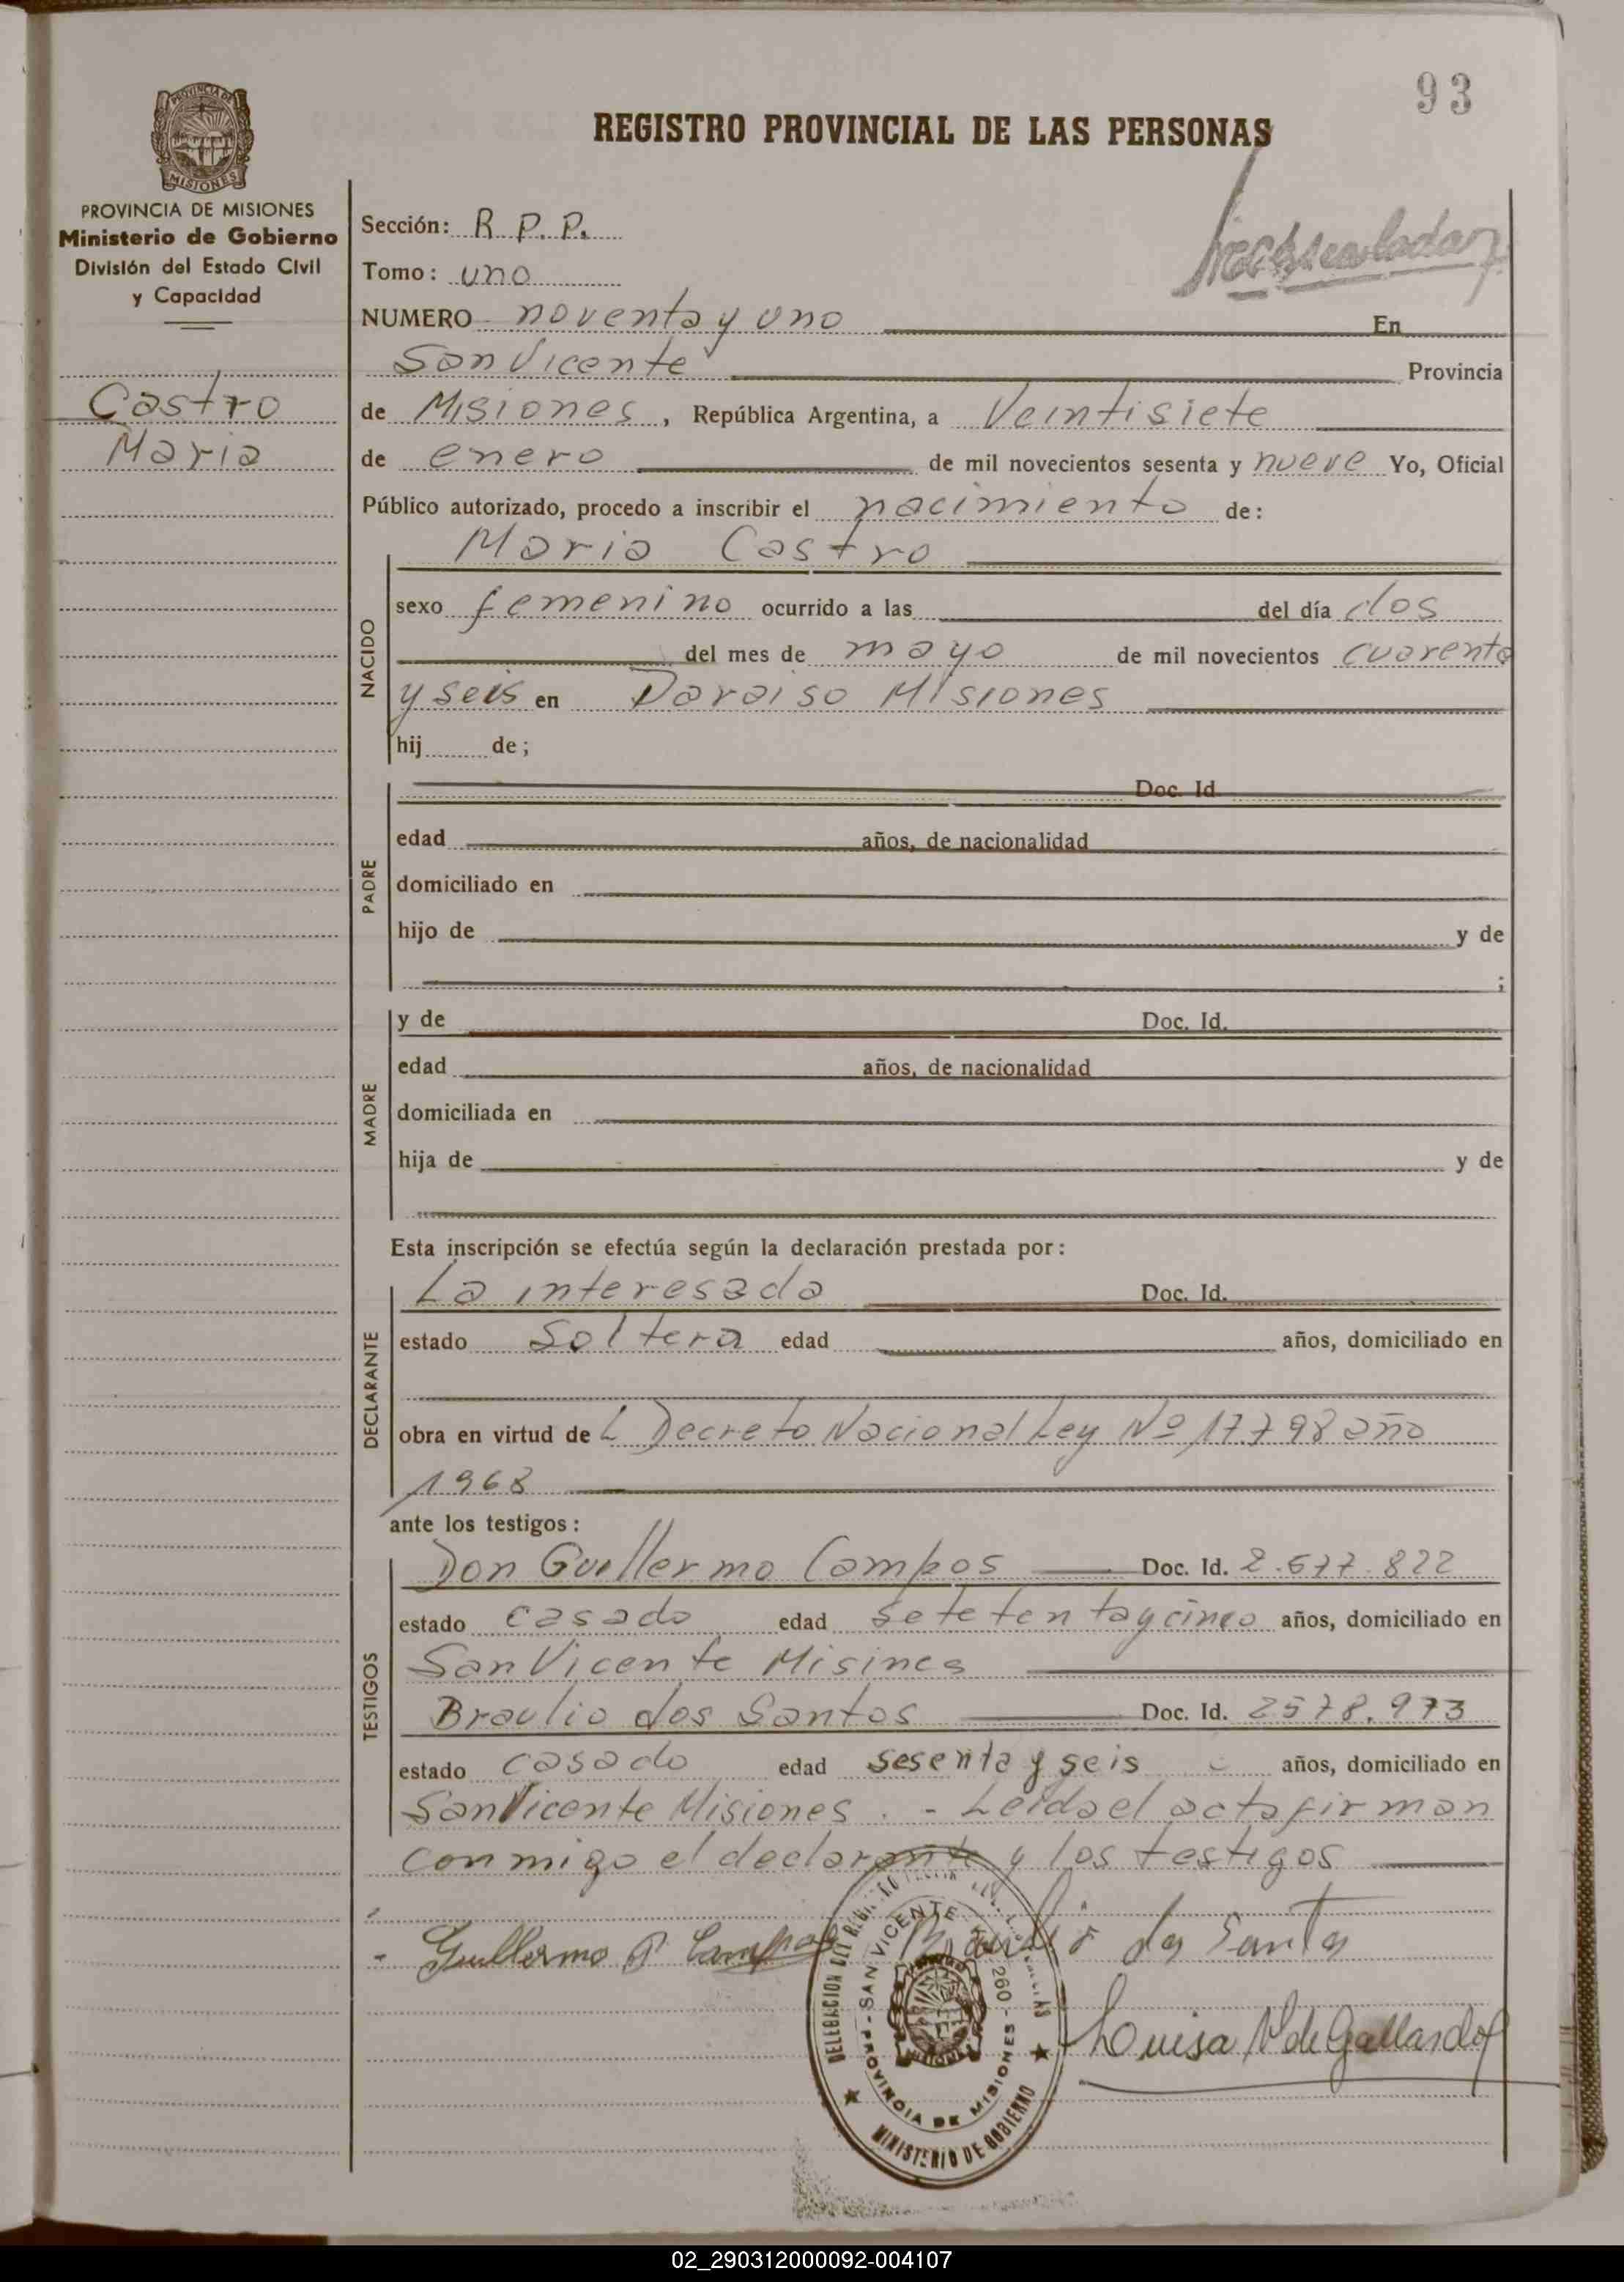 93
REGISTRO PROVINCIAL DE LAS PERSONAS
PROVINCIA DE
MISIONES
PROVINCIA DE MISIONES
Ministerio de Gobierno
División del Estado Civil
y Capacidad
Castro
Maria
Sección: R P. P.
Tomo: uno
NUMERO noventa y uno En
San Vicente Provincia
de Misiones, República Argentina, a Veintisiete
de enero de mil novecientos sesenta y nueve Yo, Oficial
Público autorizado, procedo a inscribir el nacimiento de:
Maria Castro
NACIDO
sexo femenino ocurrido a las del día dos
del mes de mayo de mil novecientos cuarenta
y seis en Paraiso Misiones
hij de;
PADRE
Doc. Id
edad años, de nacionalidad
domiciliado en
hijo de y de
;
MADRE
y de Doc. Id.
edad años, de nacionalidad
domiciliada en
hija de y de
Esta inscripción se efectúa según la declaración prestada por:
DECLARANTE
La interesada Doc. Id.
estado Soltera edad años, domiciliado en
obra en virtud de L Decreto Nacional Ley Nº 17798 año
1968
ante los testigos:
TESTIGOS
Don Guillermo Campos Doc. Id. 2.677.822
estado casado edad setetentaycinco años, domiciliado en
San Vicente Misines
Braulio dos Santos Doc. Id. 2578.973
estado casado edad sesenta y seis años, domiciliado en
San Vicente Misiones. - Leida el acta firman
conmigo el declarante y los testigos
Guillermo P Campos Braulio dos Santos
Luisa N de Gallardo
DELEGACION DEL REGISTRO
SAN VICENTE K. 260 - PROVINCIA DE MISIONES
MINISTERIO DE GOBIERNO
02_290312000092-004107